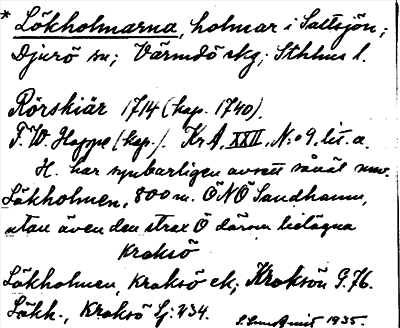 * Lökholmarna, holmar i Saltsjön;
Djurö sn; Värmdö skg; Sthlms l.
Rörskiär 1714 (kop. 1740).
P. W. Hoppe (kop.). KrA, XXII, N:o 9, lit. a.
H. har synbarligen avsett såväl nuv.
Lökholmen, 800 m. ÖNÖ Sandhamn,
utan även den strax Ö därom belägna
Kroksö
Lökholmen, Kroksö ek; Kroksön G. 76.
Lökh., Kroksö Lj: 434.
1935.